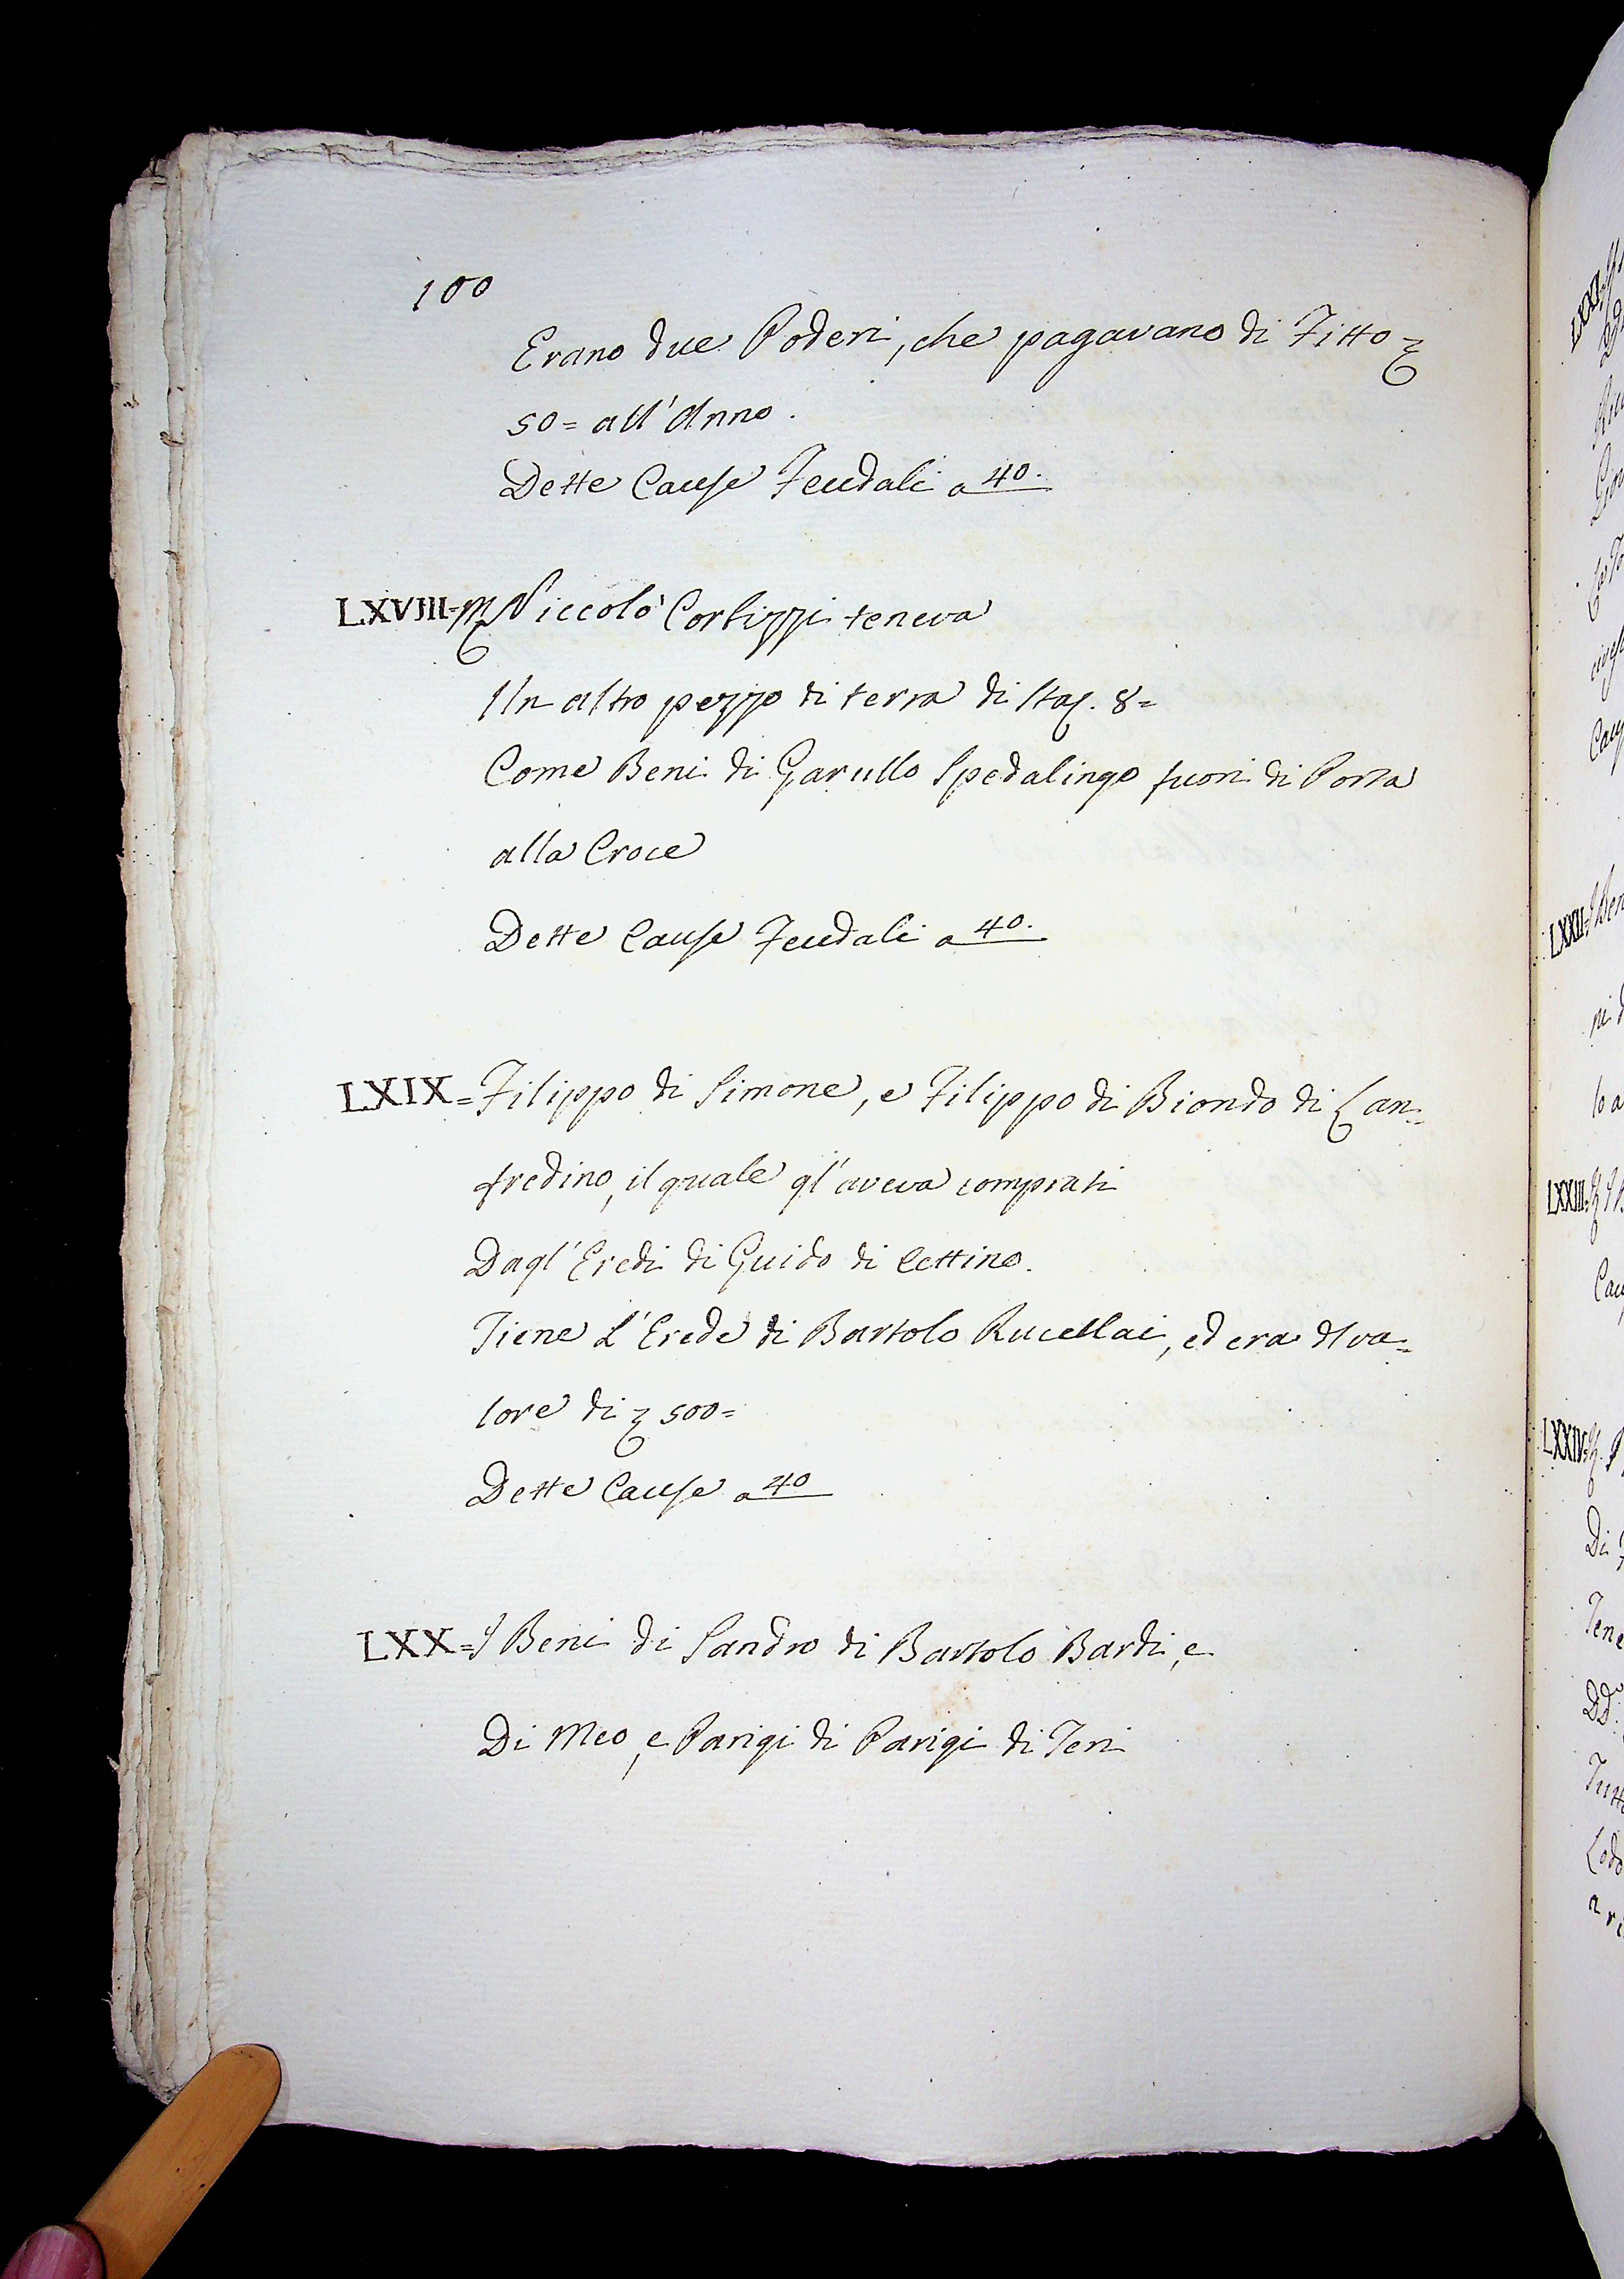 100
Erano due Poderi, che pagavano di Fitto
50= all'Anno.
Dette Cause Feudali a 40.
LXVIII= Niccolò Corbizzi teneva
Un altro pezzo di terra di Staj. 8=
Come Beni di Garullo Spedalingo fuori di Porta
alla Croce
Dette Cause Feudali a 40.
LXIX= Filippo di Simone, e Filippo di Biondo di Lan=
fredino, il quale gl'aveva comprati
Dagl'Eredi di Guido di Cettino.
Tiene L'Erede di Bartolo Rucellai, ed era di va=
lore di 500=
Dette Cause a 40
LXX= I Beni di Sandro di Bartolo Bardi, e
Di Meo, e Parigi di Parigi di Teri
LXXI=
LXXII=
LXXIII=
LXXIV=
Di